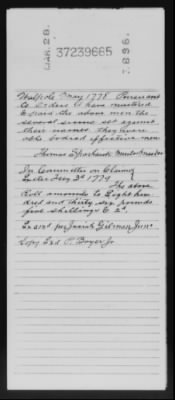 MAR.28.
37239665
1898.
Walpole May 1778. Pursuant
to Orders I have mustered
& paid the above men the
several sums set against
their names they being
able bodied effective men
Thomas Sparhawk Muster Master
In Committee on Claims
Exeter Feby 3d 1779
The above
Roll amounts to Eight hun
dred and thirty six pounds
five shillings & 2d.
Exam'd per Josiah Gilman Junr
Copy Exd P. Boyer Jr